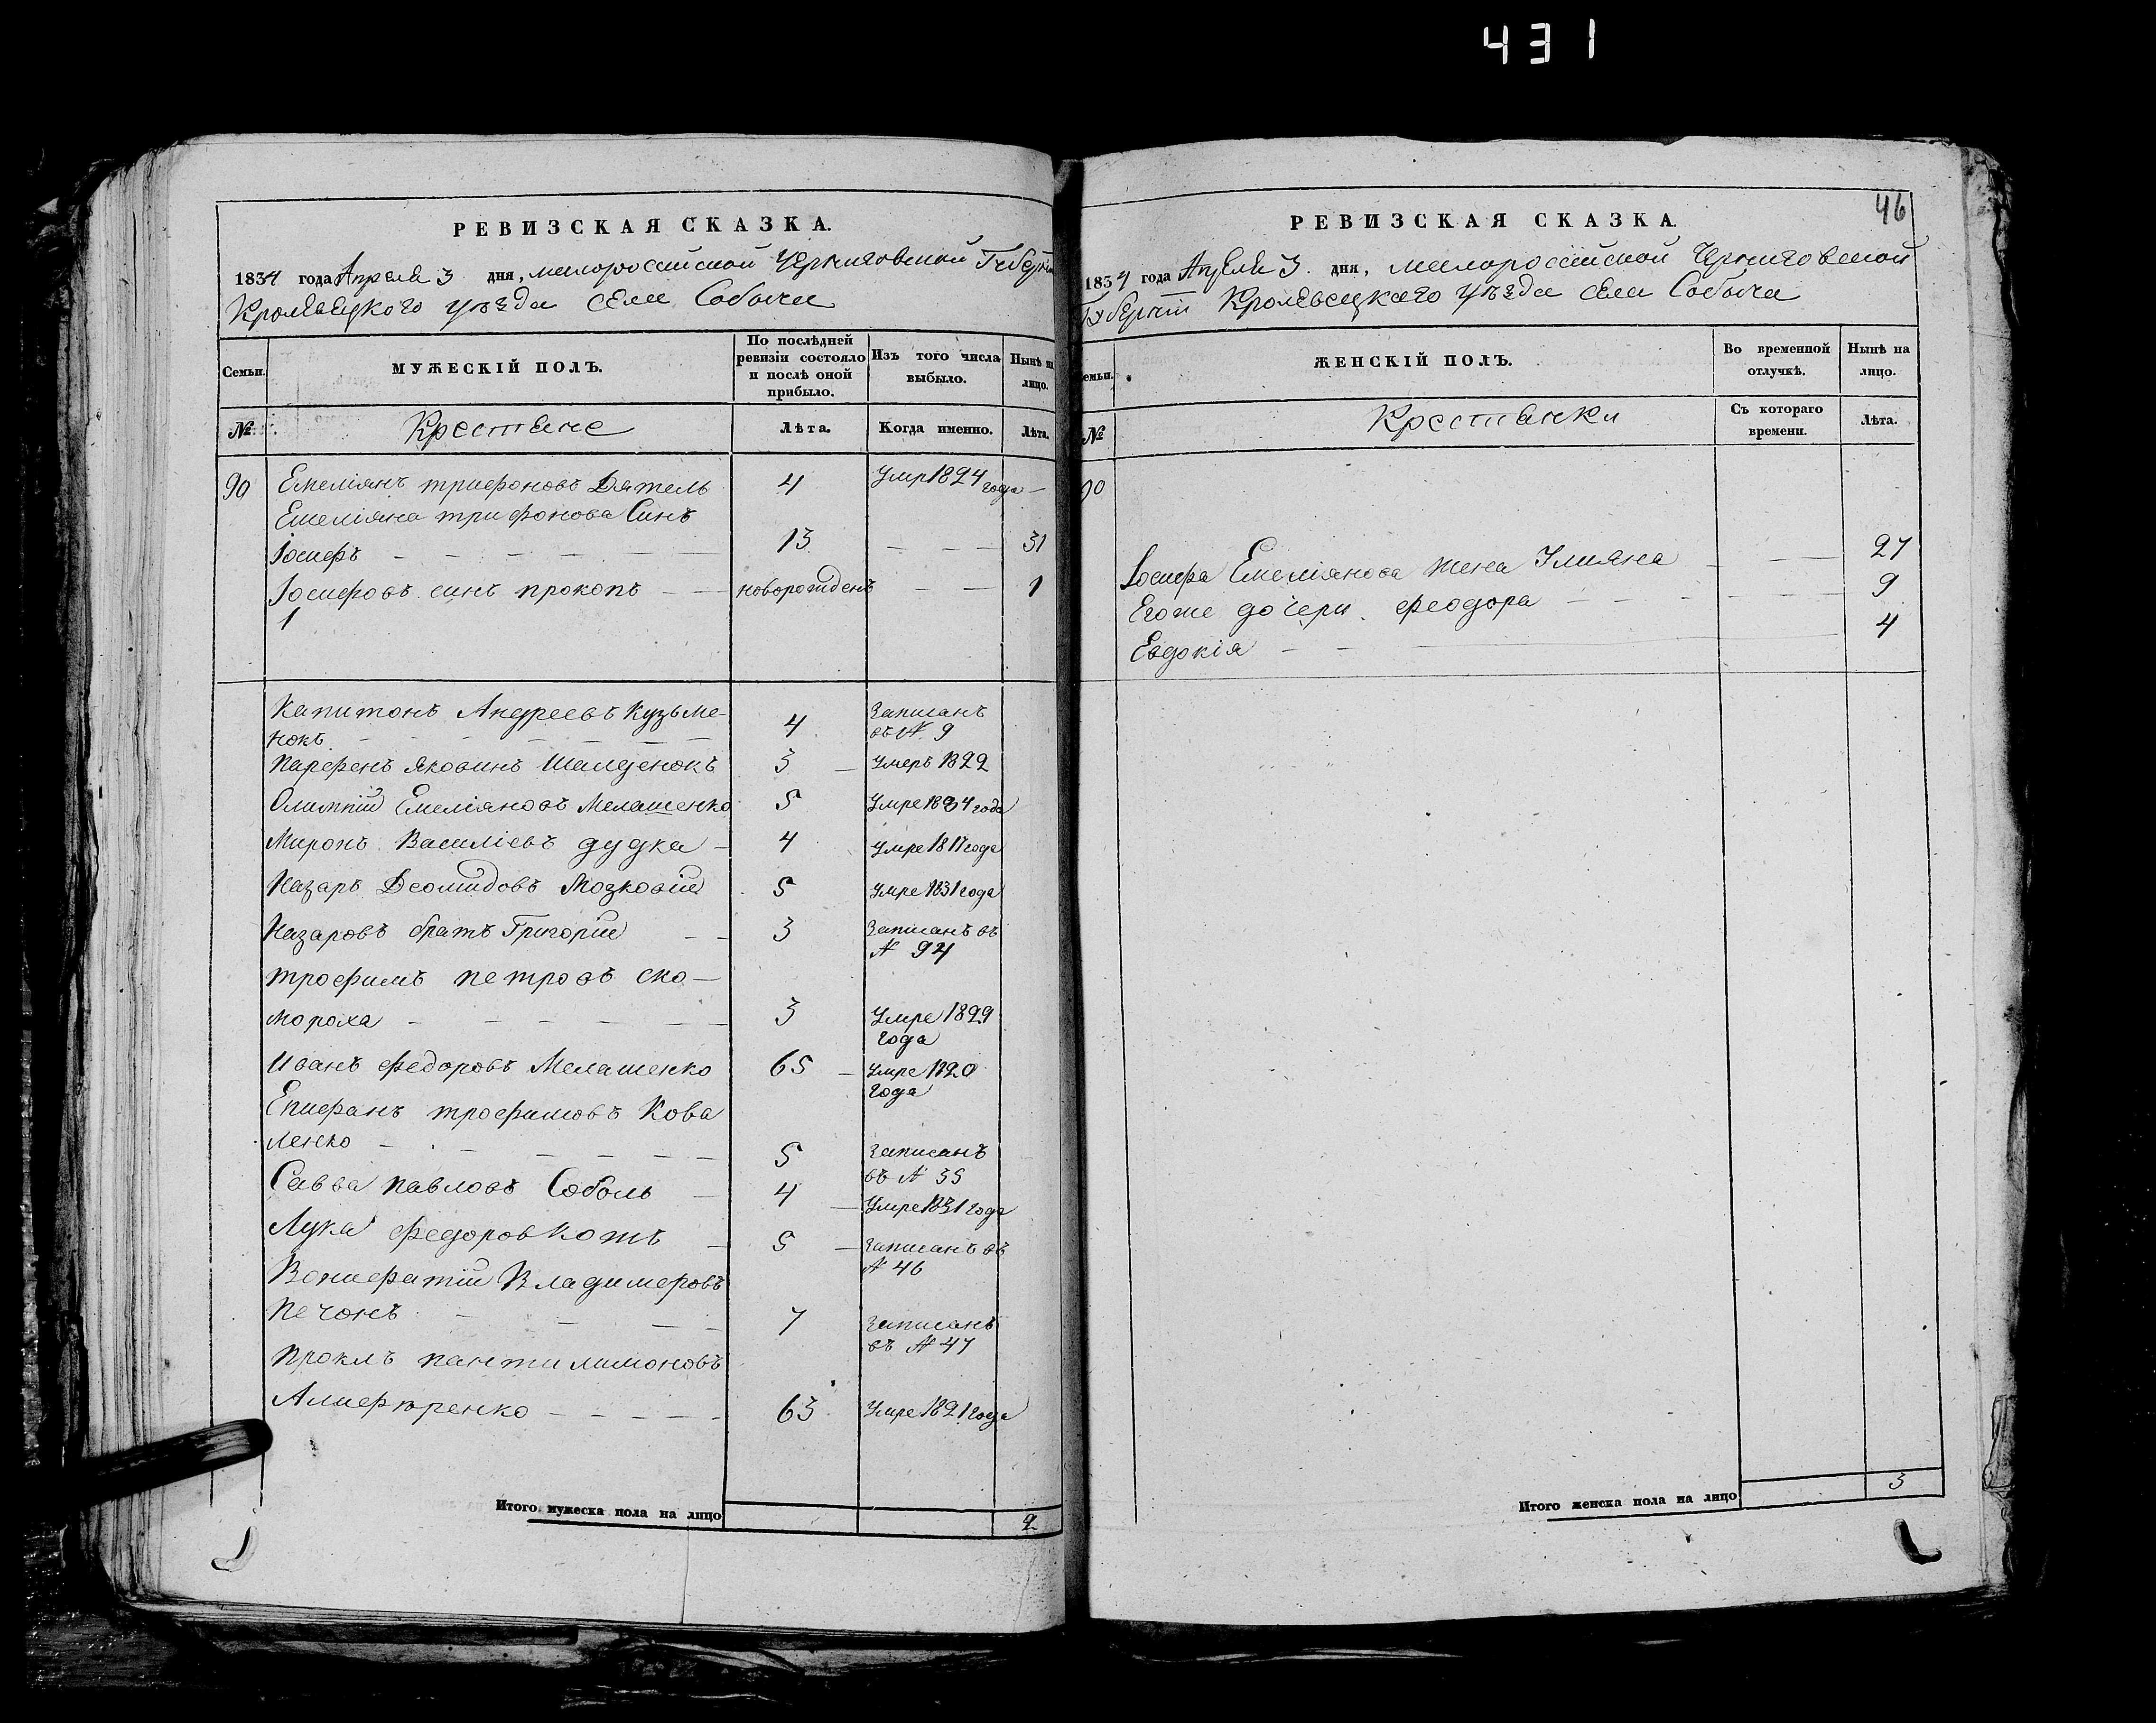 431
РЕВИЗСКАЯ СКАЗКА.
1834 года Апреля 3 дня, малороссійской Черниговской Губерніи
Кролевецкого уѣзда села Собыча
Семьи.
МУЖЕСКІЙ ПОЛЪ.
По послѣдней ревизіи состояло и послѣ оной прибыло.
Изъ того числа выбыло.
Нынѣ на лицо.
№
Крестяне
Лѣта.
Когда именно.
Лѣта.
90 Емеліянъ трифоновъ Дятель 4 Умр 1824 года
Емеліяна трифонова Синъ
Іосифъ 13 31
Іосифовъ синъ прокопъ новорожденъ 1
1
Капитонъ Андреевъ Кузьме-
нокъ 4 Записанъ въ № 9
Парфенъ Яковинъ Шалденокъ 3 Умеръ 1822
Олимпій Емеліяновъ Мелашенко 5 Умре 1834 года
Миронъ Василіевъ дудка 4 Умре 1817 года
Назаръ Деомидовъ Мозковій 5 Умре 1831 года
Назаровъ братъ Григорій 3 Записанъ въ № 94
трофимъ петровъ ско-
мороха 3 Умре 1829 года
Иванъ Федоровъ Мелашенко 65 Умре 1820 года
Епифанъ трофимовъ Кова
ленко 5 Записанъ въ № 35
Савва павловъ Соболь 4 Умре 1831 года
Лука Федоров Котъ 5 Записанъ въ № 46
Вонифатій Владимеровъ
печонъ 7 Записанъ въ № 47
проклъ пантилимоновъ
Алиференко 63 Умре 1821 года
Итого мужеска пола на лицо 2
46
РЕВИЗСКАЯ СКАЗКА.
1834 года Апреля 3 дня, малороссійской Черниговской
Губерніи Кролевецкаго уѣзда села Собыча
Семьи.
ЖЕНСКІЙ ПОЛЪ.
Во временной отлучкѣ.
Нынѣ на лицо.
№
Крестянки
Съ котораго времени.
Лѣта.
90
Іосифа Емеліянова жена Улияна 27
Егоже дочери Феодора 9
Евдокія 4
Итого женска пола на лицо 3